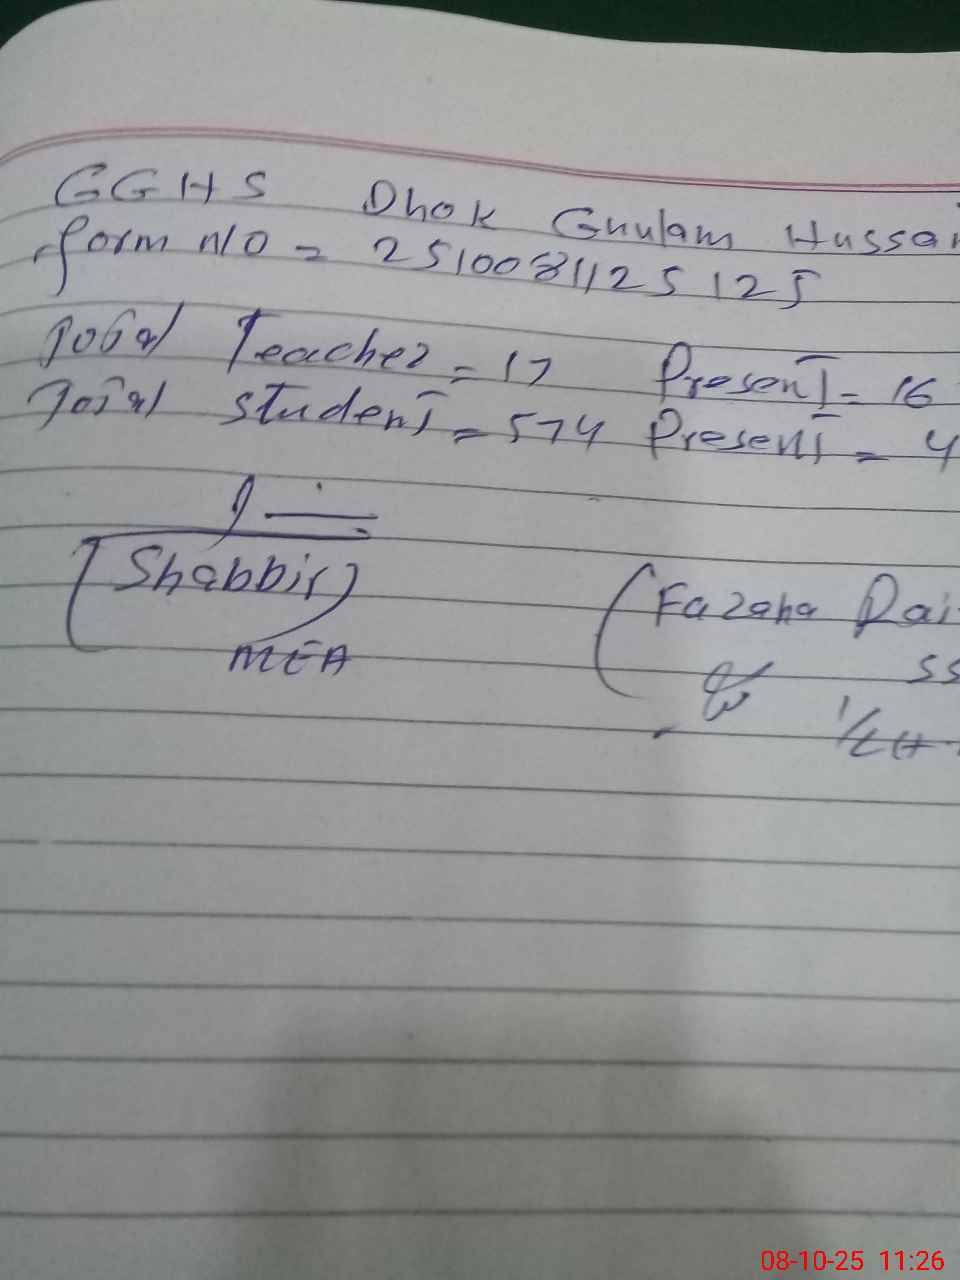 GGHS Dhok Ghulam Hussai
form No = 2510081125125
Total Teacher = 17 Present = 16
Total student = 574 Present = 4
(Shabbir)
MEA
(Fazana
SS
08-10-25 11:26